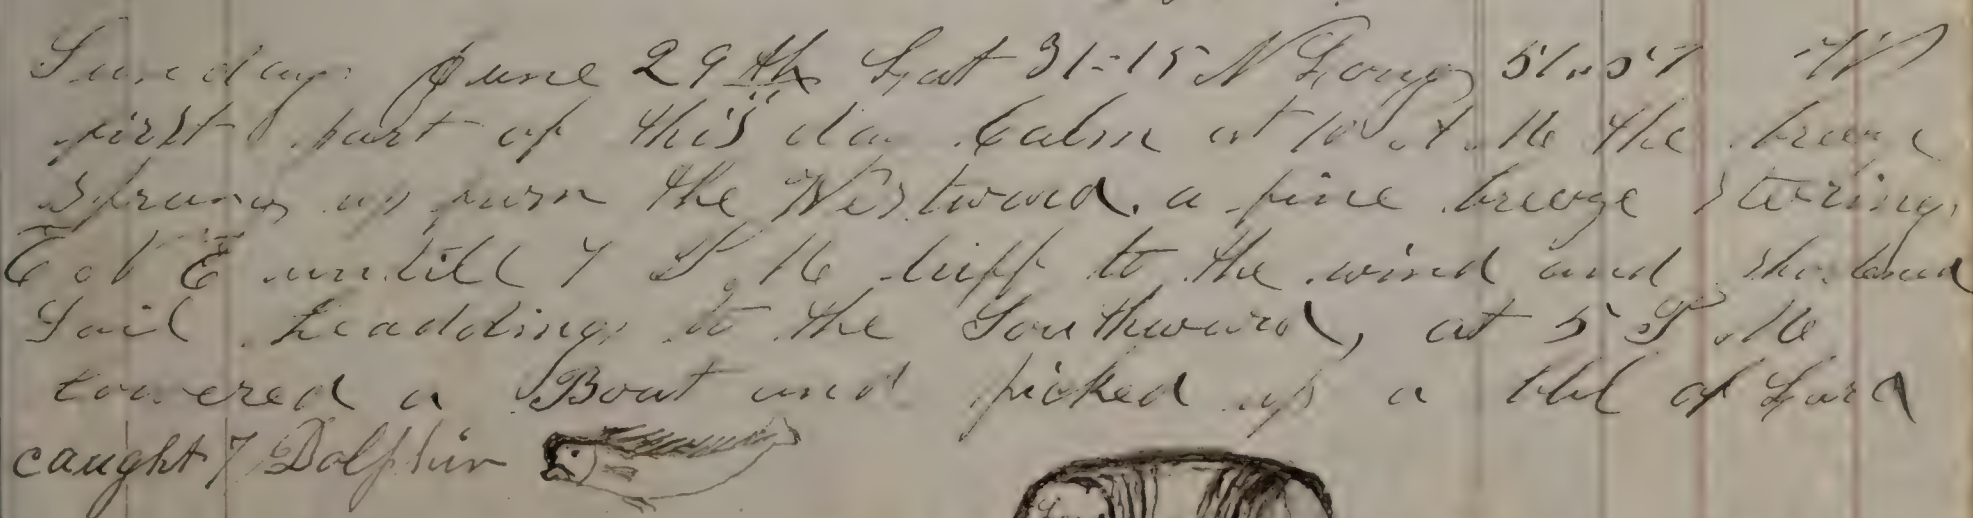 Sunday June 29th Lat 31-15 N Long 51-57 W
first part of this day Calm at 10 A M the breeze
sprung up furm the Westward, a fine breeze stering
E b E untill 7 P M luff to the wind and shortand
Sail headding to the Southward, at 5 P M
lowered a Boat and picked up a bbl of Lard
caught 7 Dolphin